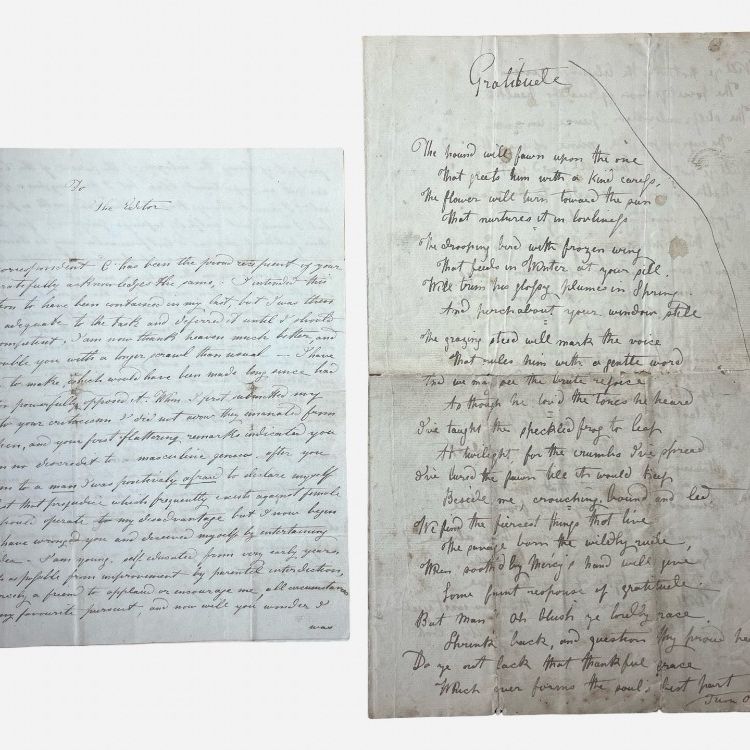 To
The Editor
orrespondent C. has been the proud recipient of your
ratefully acknowledges the same. I intended this
tion to have been contained in my last, but I was then
adequate to the task and deferred it until I should
ompetent. I am now thank heaven much better, and
ouble you with a longer scrawl than usual — I have
to make which would have been made long since had
powerfully opposed it. When I first submitted my
to your criticism I did not avow they emanated from
hen, and your first flattering remarks indicated you
no discredit to a masculine genius. after you
me to a man I was positively afraid to declare myself
that prejudice which frequently exists against female
should operate to my disadvantage but I now begin
have wronged you and deceived myself by entertaining
idea. I am young, self educated from very early years
as possible from improvement by parental interdiction,
a friend to applaud or encourage me, all circumstances
my favourite pursuit and now will you wonder I
was
Gratitude
The hound will fawn upon the one
That greets him with a kind caress,
The flower will turn toward the sun
That nurtures it in loveliness
The drooping bird with frozen wing
That feeds in Winter at your sill.
Will trim his glossy plumes in Spring
And perch about your window still
The grazing steed will mark the voice
That rules him with a gentle word
And we may see the brute rejoice
As though he lov'd the tones he heard
I've taught the speckled frog to leap
At twilight for the crumbs I've spread
I've lured the fawn till it would keep
Beside me, crouching, bound and led
We find the fiercest things that live
The savage born the wildly rude,
When sooth'd by Mercy's hand will give
Some faint response of gratitude.
But man oh blush ye lordly race
Shrink back, and question thy proud hea
Do ye not lack that thankful grace
Which ever forms the soul's best part
Turn O